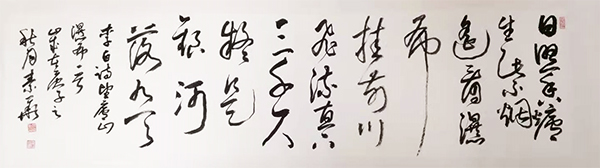 日照香炉
生紫烟
遥看瀑
布
挂前川
飞流直下
三千尺
疑是
银河
落九天
李白诗望庐山
瀑布一首
岁在庚子之
秋月